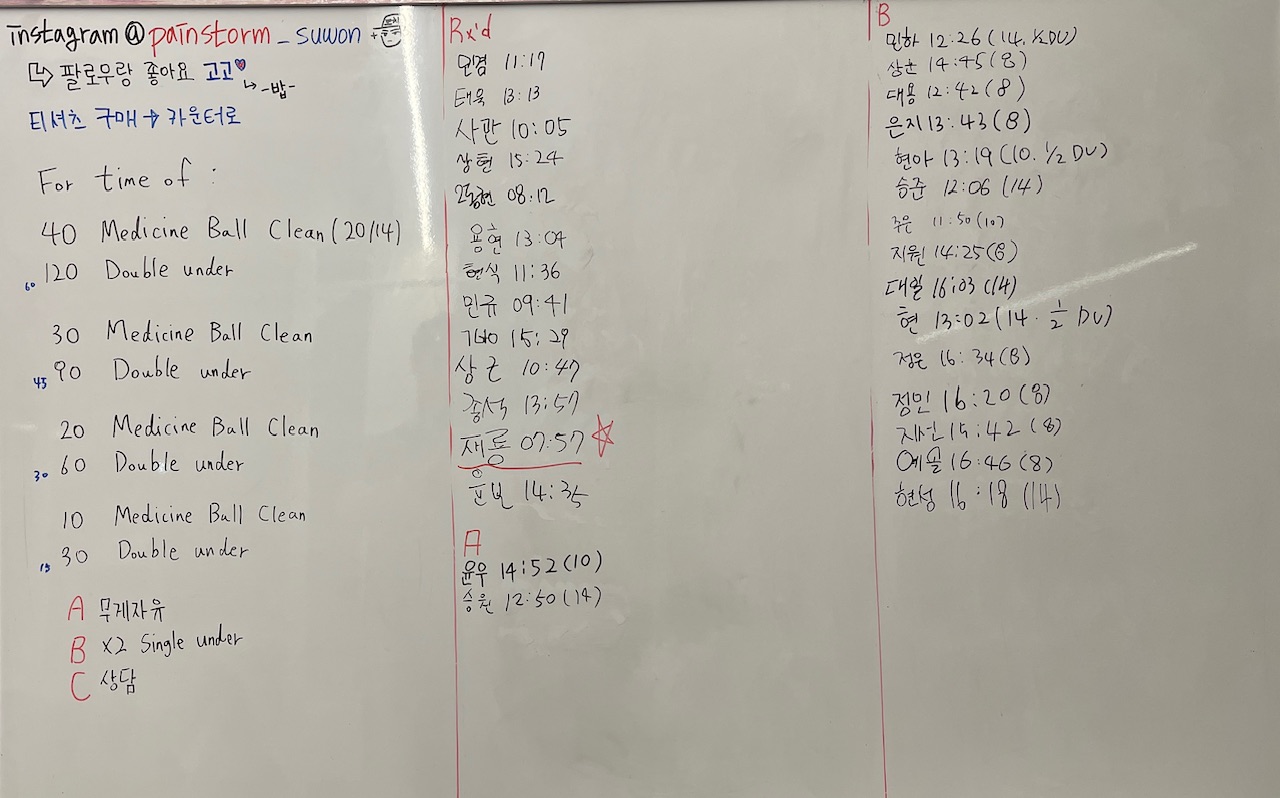 instagram@painstorm_suwon
팔로우랑 좋아요 고고
-밥-
티셔츠 구매 → 카운터로
For time of :
40 Medicine Ball Clean (20/14)
60 120 Double under
30 Medicine Ball Clean
45 90 Double under
20 Medicine Ball Clean
30 60 Double under
10 Medicine Ball Clean
15 30 Double under
A 무게자유
B x2 Single under
C 상담
Rx'd
민겸 11:17
태욱 13:13
사만 10:05
상현 15:24
08:12
용현 13:04
현식 11:36
민규 09:41
15:29
상근 10:47
종석 13:57
재룡 07:57
윤보 14:35
A
윤우 14:52 (10)
승원 12:50 (14)
B
민하 12:26 (14, 1/2DU)
14:45 (8)
대용 12:42 (8)
은지 13:43 (8)
현아 13:19 (10. 1/2 DU)
승준 12:06 (14)
주은 11:50 (10)
지원 14:25 (8)
대일 16:03 (14)
현 13:02 (14. 1/2 DU)
정은 16:34 (8)
정민 16:20 (8)
15:42 (8)
16:46 (8)
현성 16:18 (14)